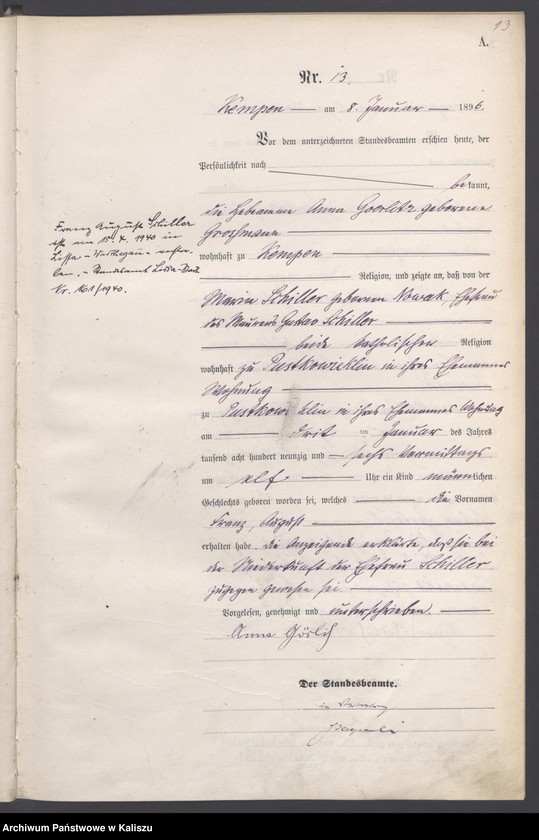 13
A.
Nr. 13.
Kempen am 8. Januar 1896.
Vor dem unterzeichneten Standesbeamten erschien heute, der
Persönlichkeit nach
bekannt,
die Hebamme Anna Goerlitz geborene
Großmann
wohnhaft zu Kempen
Religion, und zeigte an, daß von der
Maria Schiller geborenen Nowak, Ehefrau
des Maurers Gustav Schiller
beide katholischer Religion
wohnhaft zu in ihres Ehemannes
Wohnung
zu in ihres Ehemannes Wohnung
am ten Januar des Jahres
tausend acht hundert neunzig und sechs Vormittags
um elf Uhr ein Kind männlichen
Geschlechts geboren worden sei, welches die Vornamen
Franz, August
erhalten habe. die Anzeigende erklärte, daß sie bei
der Niederkunft der Ehefrau Schiller
zugegen gewesen sei.
Vorgelesen, genehmigt und unterschrieben.
Anna
Der Standesbeamte.
Franz August Schiller
ist am 15. 1940 in
Lissa
Standesamt Lissa
Nr. 161/1940.
Archiwum Państwowe w Kaliszu